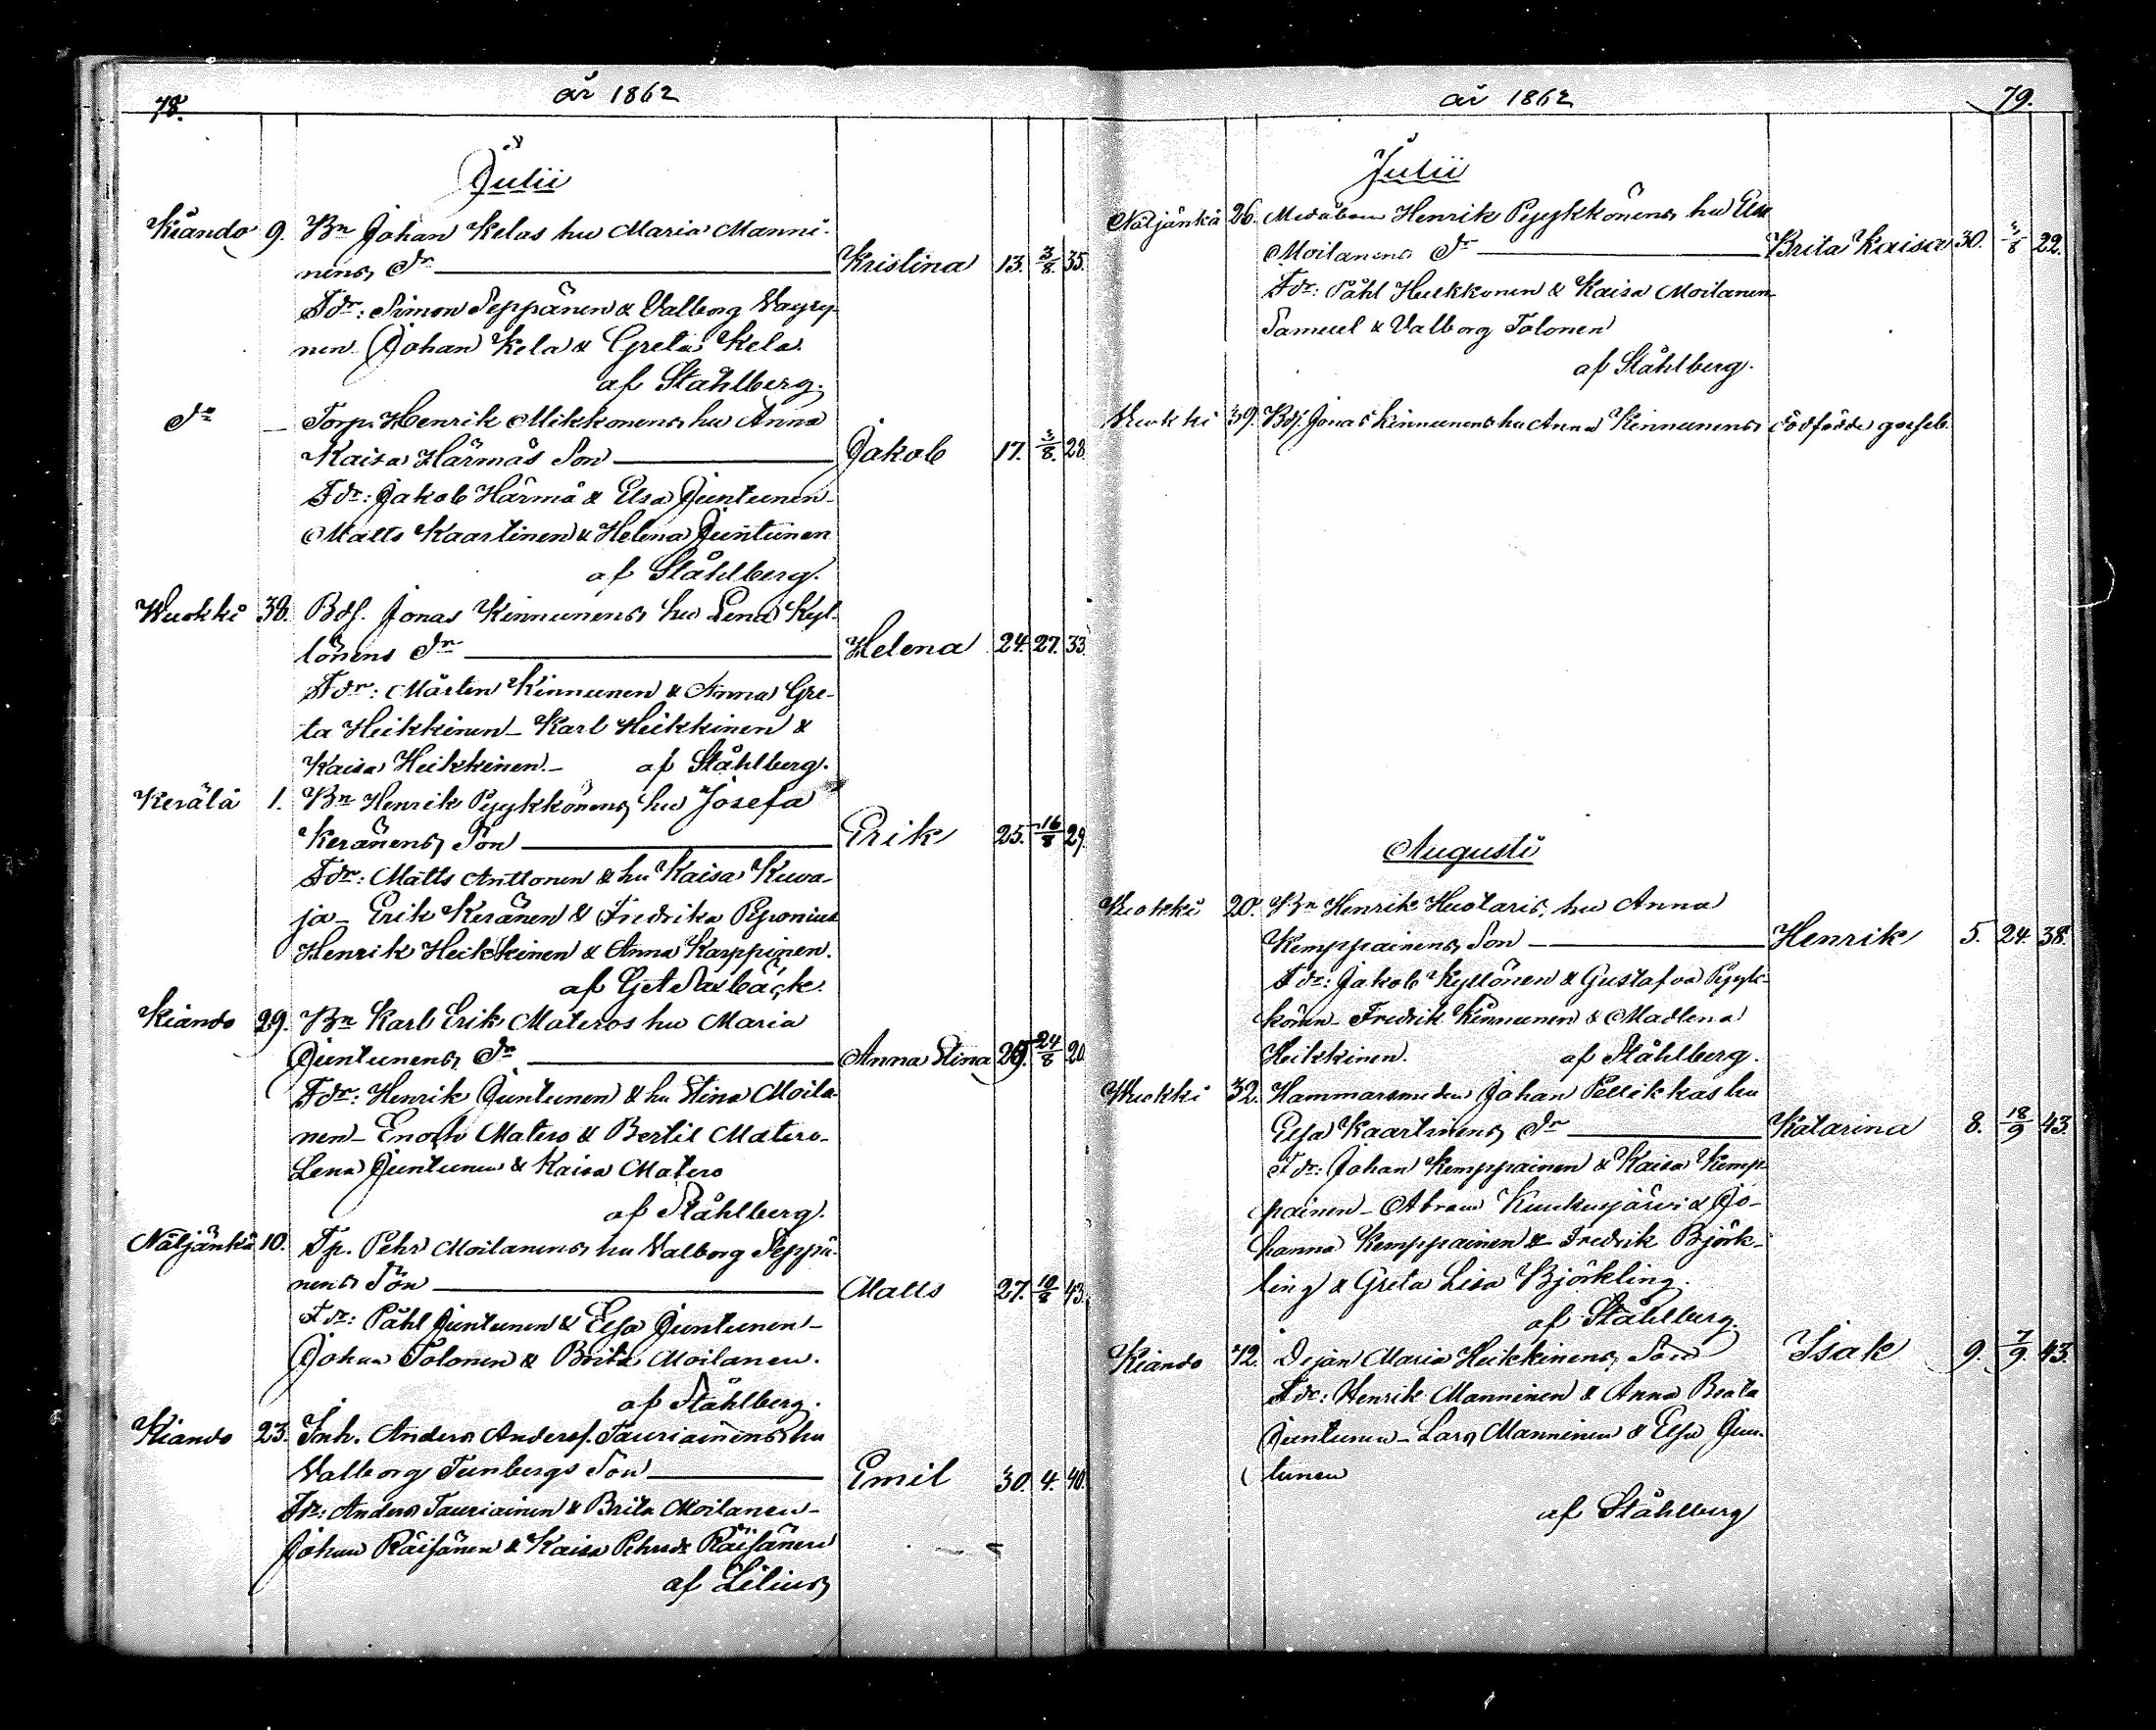 78.
år 1862
Julii
Kiando 9. Bn Johan Kelas hu Maria Manni-
nens Dr Kristina 13. 3/8. 35.
Fdr: Simon Seppänen & Valborg Wäyry-
nen Johan Kela & Greta Kela.
af Ståhlberg.
Do Torp. Henrik Mikkonens hu Anna
Kaisa Härmäs Son Jakob 17. 3/8. 28.
Fdr: Jakob Härmä & Elsa Juntunen-
Matts Kaartinen & Helena Juntunen
af Ståhlberg.
Wuokki 38. Bdf. Jonas Kinnunens hu Lena Kyl-
lönens Dr Helena 24. 27. 33.
Fdr: Mårten Kinnunen & Anna Gre-
ta Heikkinen - Karl Heikkinen &
Kaisa Heikkinen.- af Ståhlberg.
Kerälä 1. Bn Henrik Pyykkönens hu Josefa
Keränens Son Erik 25. 16/8 29.
Fdr: Matts Anttonen & hu Kaisa Kuva-
ja - Erik Keränen & Fredrika Pyponius
Henrik Heikkinen & Anna Karppinen.
af Saxbäck.
Kiando 29. Bn Karl Erik Materos hu Maria
Juntunens Dr Anna Stina 29. 24/8 20.
Fdr: Henrik Juntunen & hu Stina Moila-
nen - Enoch Matero & Bertil Matero-
Lena Juntunen & Kaisa Matero
af Ståhlberg.
Näljänkä 10. Tp. Pehr Moilanens hu Valborg Seppä-
nens Son Matts 27. 10/8 43.
Fdr: Påhl Juntunen & Elsa Juntunen -
Johan Tolonen & Brita Moilanen.
af Ståhlberg.
Kiando 23. Inh. Anders Andersf. Tauriainens hu
Valborg Tunbergs Son Emil 30. 4. 40.
Fdr: Anders Tauriainen & Brita Moilanen -
Johan Räisänen & Kaisa Pehrsdr Räisänen
af Lilius
år 1862
79.
Julii
Näljänkä 26. Henrik Pyykkönens hu Elsa
Moilanens Dr Brita Kaisa 30. 3/8 22.
Fdr: Påhl Heikkonen & Kaisa Moilanen
Samuel & Valborg Tolonen
af Ståhlberg.
Wuokki 39. Bdf. Jonas Kinnunens hu Anna Kinnunens dödfödde gosseb.
Augusti
Wuokki 20. Bn Henrik Huotaris, hu Anna
Kemppainens Son Henrik 5. 24. 38.
Fdr: Jakob Kyllönen & Gustafva Pyyk-
könen - Fredrik Kinnunen & Madlena
Heikkinen. af Ståhlberg.
Wuokki 32. Hammarsmeden Johan Pellikkas hu
Elsa Kaartinens Dr Katarina 8. 18/9 43.
Fdr: Johan Kemppainen & Kaisa Kemp-
painen - Abram Kuukusjärvi & Jo-
hanna Kemppainen & Fredrik Björk-
ling & Greta Lisa Björkling.
af Ståhlberg.
Kiando 42. Dejan Maria Heikkinens Son Isak 9. 7/9. 43.
Fdr: Henrik Manninen & Anna Beata
Juntunen - Lars Manninen & Elsa Jun-
tunen
af Ståhlberg